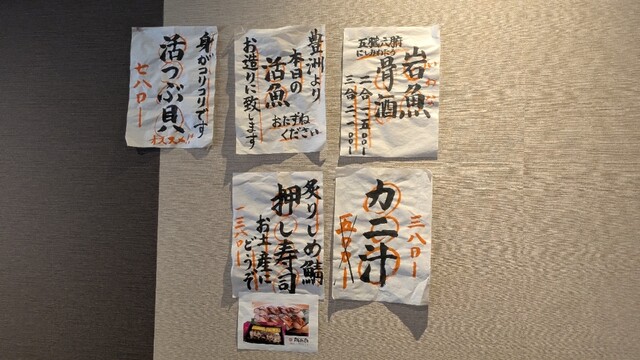 身がコリコリです
活つぶ貝
七八〇ー
オススメ!!
豊洲より
本日の
活魚
おたずね
ください
お造りに致します
岩魚
いわな
骨酒
五臓六腑
にしみわたる
二合 二五〇〇ー
三合 三一〇〇ー
炙りしめ鯖
押し寿司
お土産に
どうぞ
一三八〇ー
カニ汁
三八〇ー
五〇〇ー